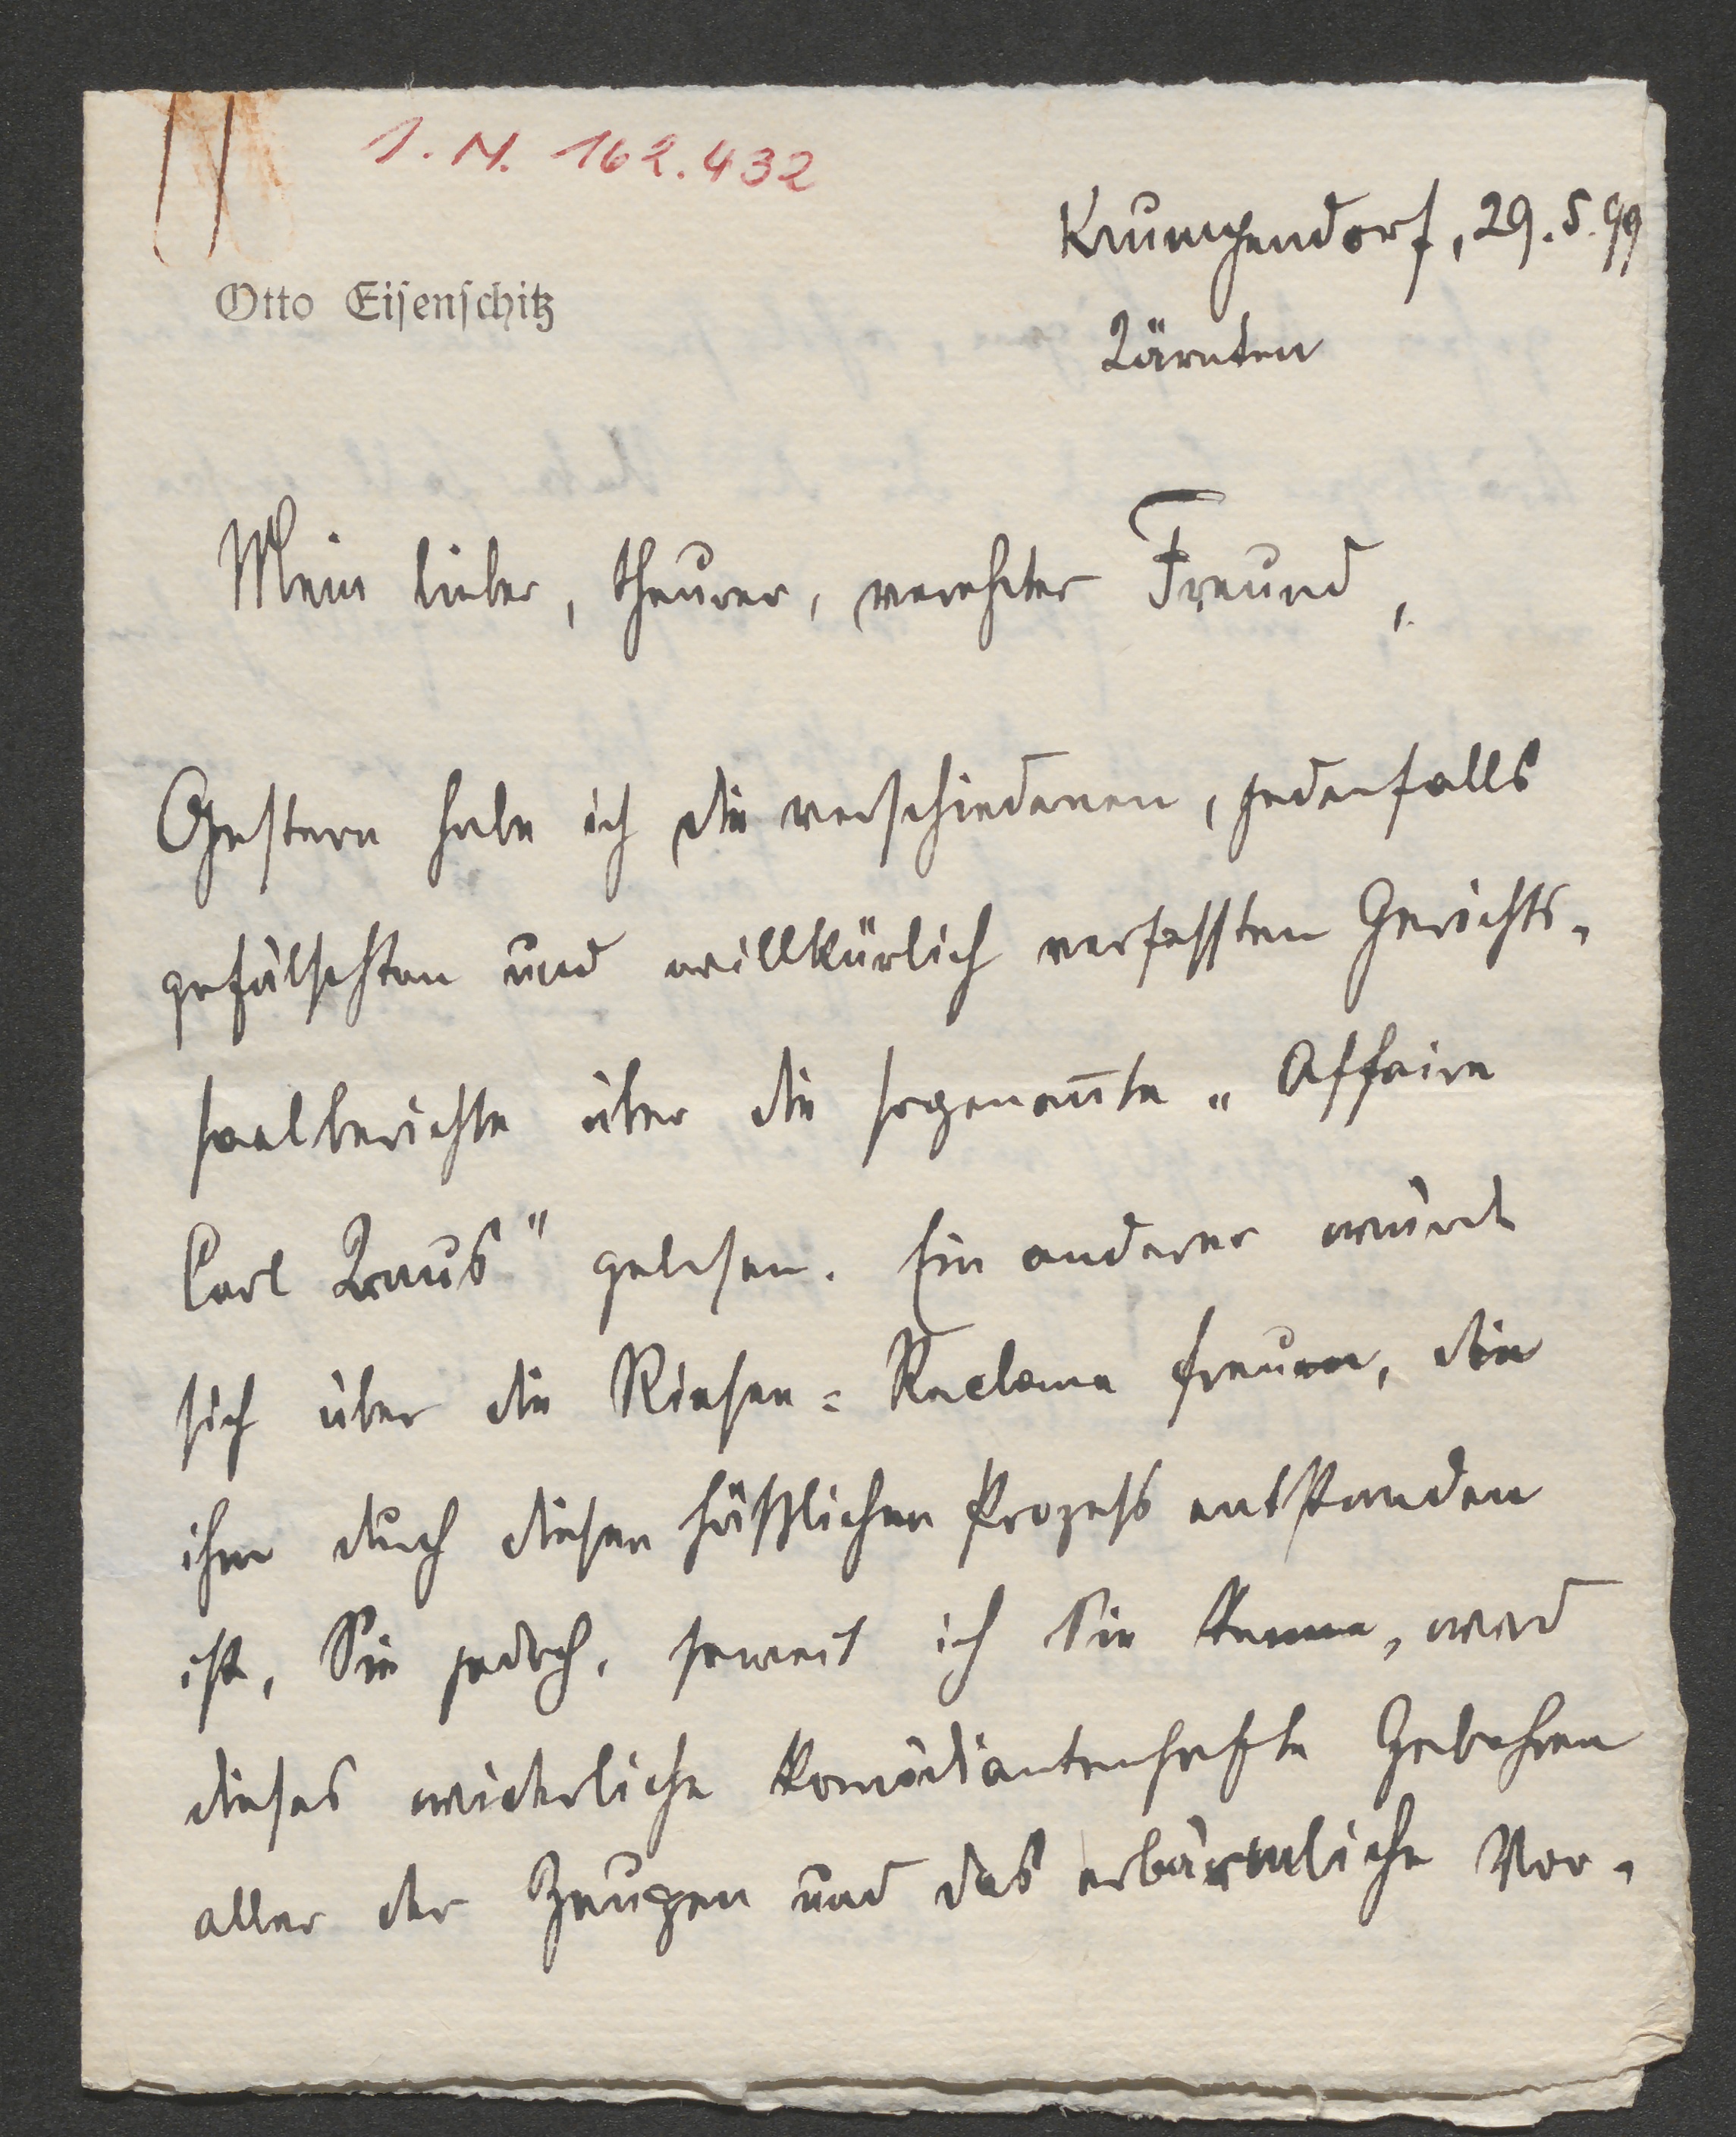 I. N. 162.432
Krumpendorf, 29.5.99
Otto Eisenschitz
Kärnten
Mein lieber, theurer, verehrter Freund,
Gestern habe ich die verschiedenen, jedenfalls
gefälschten und willkürlich verfassten Gerichts-
saalberichte über die sogenannte „Affaire
Carl Kraus" gelesen. Ein anderer würde
sich über die Riesen-Reclame freuen, die
ihm durch diesen häßlichen Prozess entstanden
ist, Sie jedoch, soweit ich Sie kenne, wird
dieses widerliche komödiantenhafte Gebahren
aller der Zeugen und das erbärmliche Vor-